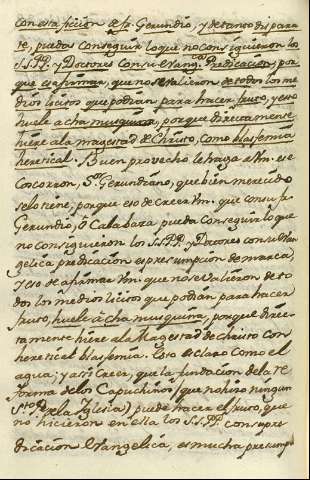 con esta ficcion de fr. Gerundio, y de tanto dispara
te, puedas conseguir lo que no consiguieron los
S.S. P.P. y Doctores con su Evangca. Predicacion, por
que es afirmar, que no se valieron de todos los me
dios licitos que podian para hacer fruto, y esto
huele a cha musquina, porque directamente
hiere a la magestad de Christo, como blasfemia
heretical. Buen provecho le haga a Vm. ese
coscorron, Sor. Gerundiano, que bien merecido
se lo tiene; porque eso de creer Vm. que con su fr.
Gerundio, ó Calabaza pueda conseguir lo que
no consiguieron los S.S. P.P. y Doctores con su Evan
gelica predicacion es presumpcion de marca;
y eso de afirmar Vm. que no se valieron de to
dos los medios licitos que podian para hacer
fruto, huele a cha musquina, porque direc
tamente hiere a la Magestad de Christo con
heretical blasfemia. Esto es claro como el
agua; y assi creer, que la fundacion de la re
forma de los Capuchinos (que no hizo ningun
Sto. Pe. de la Iglesia) puede hacer el fruto, que
no hicieron en ella los S.S. P.P. con su pre
dicacion Evangelica, es mucha presump